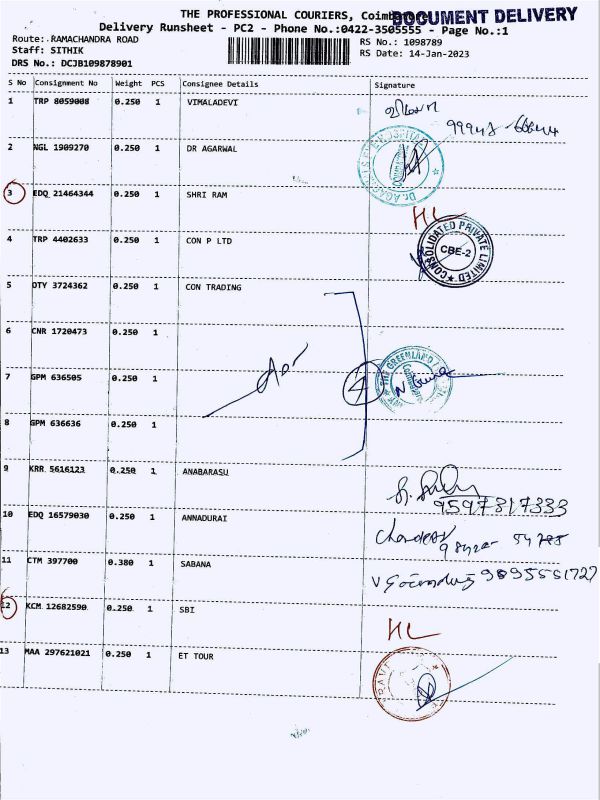 THE PROFESSIONAL COURIERS, Coimbatore
DOCUMENT DELIVERY
Delivery Runsheet - PC2 - Phone No.:0422-3505555 - Page No.:1
Route: .RAMACHANDRA ROAD
RS No.: 1098789
Staff: SITHIK
RS Date: 14-Jan-2023
DRS No.: DCJB109878901
S No Consignment No Weight PCS Consignee Details Signature
1 TRP 8059008 0.250 1 VIMALADEVI
2 NGL 1909270 0.250 1 DR AGARWAL
3 EDQ 21464344 0.250 1 SHRI RAM
HL
4 TRP 4402633 0.250 1 CON P LTD
CONSOLIDATED PRIVATE LIMITED
CBE-2
5 DTY 3724362 0.250 1 CON TRADING
6 CNR 1720473 0.250 1
7 GPM 636505 0.250 1
4
THE GREENLAND
8 GPM 636636 0.250 1
9 KRR 5616123 0.250 1 ANABARASU
9597817333
10 EDQ 16579030 0.250 1 ANNADURAI
11 CTM 397700 0.380 1 SABANA
12 KCM 12682590 0.250 1 SBI
HL
13 MAA 297621021 0.250 1 ET TOUR